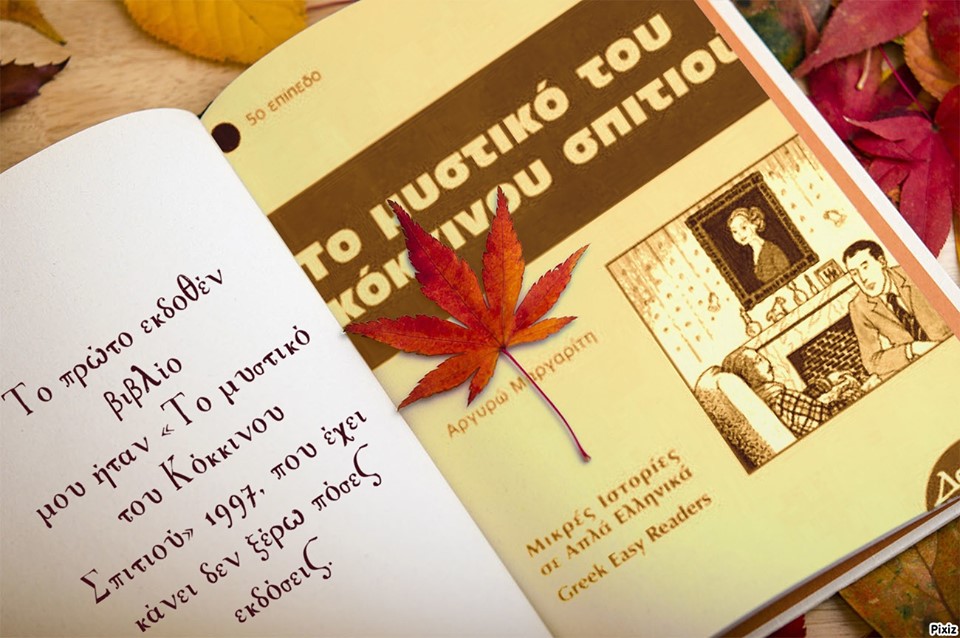 Το πρώτο εκδοθέν
βιβλίο
μου ήταν «Το μυστικό
του Κόκκινου
Σπιτιού» 1997, που έχει
κάνει δεν ξέρω πόσες
εκδόσεις.
5ο επίπεδο
το μυστικό του
κόκκινου σπιτιού
Αργυρώ Μαργαρίτη
Μικρές Ιστορίες
σε Απλά Ελληνικά
Greek Easy Readers
Pixiz